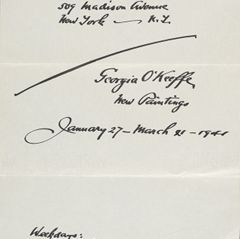 509 Madison Avenue
New York — N.Y.
Georgia O'Keeffe
New Paintings
January 27 — March 21 - 1941
Weekdays: